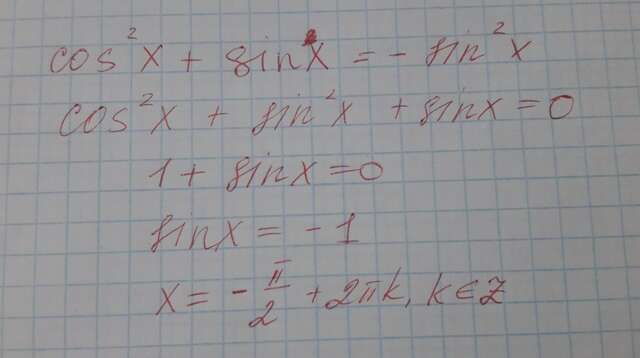 cos²x + sinx = - sin²x
cos²x + sin²x + sinx = 0
1 + sinx = 0
sinx = - 1
x = - π/2 + 2πk, k ∈ Z